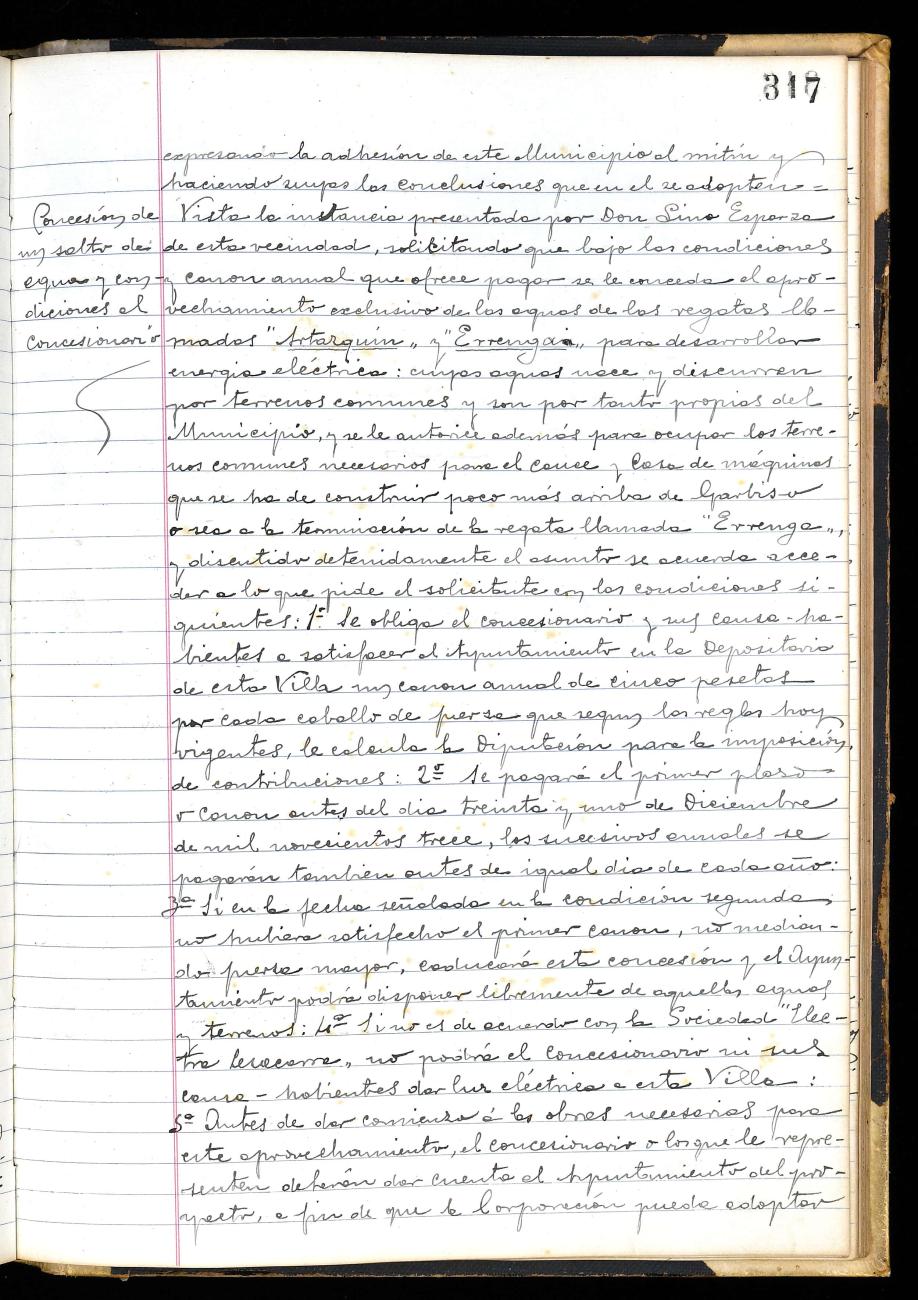 317
expresando la adhesión de este Municipio al mitin y
haciendo suyas las conclusiones que en el se adopten =
Concesión de
un salto de
agua y con-
diciones al
concesionario
Vista la instancia presentada por Don Lino Esparza
de esta vecindad, solicitando que bajo las condiciones
y canon anual que ofrece pagar se le conceda el apro-
vechamiento exclusivo de las aguas de las regatas lla-
madas "Artazquin" y "Errenga", para desarrollar
energia eléctrica: cuyas aguas nace y discurren
por terrenos comunes y son por tanto propias del
Municipio, y se le autorice además para ocupar los terre-
nos comunes necesarios para el cauce y Casa de máquinas
que se ha de construir poco más arriba de Garbiso
o sea a la terminación de la regata llamada "Errenga",
y discutido detenidamente el asunto se acuerda acce-
der a lo que pide el solicitante con las condiciones si-
guientes: 1ª Se obliga el concesionario y sus causa-ha-
bientes a satisfacer al Ayuntamiento en la Depositaria
de esta Villa un canon anual de cinco pesetas
por cada caballo de fuerza que segun las reglas hoy
vigentes, le calcula la Diputación para la imposición
de contribuciones: 2ª Se pagará el primer plazo
o canon antes del dia treinta y uno de Diciembre
de mil novecientos trece, los sucesivos anuales se
pagarán tambien antes de igual dia de cada año:
3ª Si en la fecha señalada en la condición segunda,
no hubiera satisfecho el primer canon, no median-
do fuerza mayor, caducará esta concesión y el Ayun-
tamiento podrá disponer libremente de aquellas aguas
y terrenos: 4ª Si no es de acuerdo con la Sociedad "Elec-
tra Lesacarra", no podrá el concesionario ni sus
causa-habientes dar luz eléctrica a esta Villa:
5ª Antes de dar comienzo á las obras necesarias para
este aprovechamiento, el concesionario o los que le repre-
senten deberán dar cuenta al Ayuntamiento del pro-
yecto, a fin de que la Corporación pueda adoptar